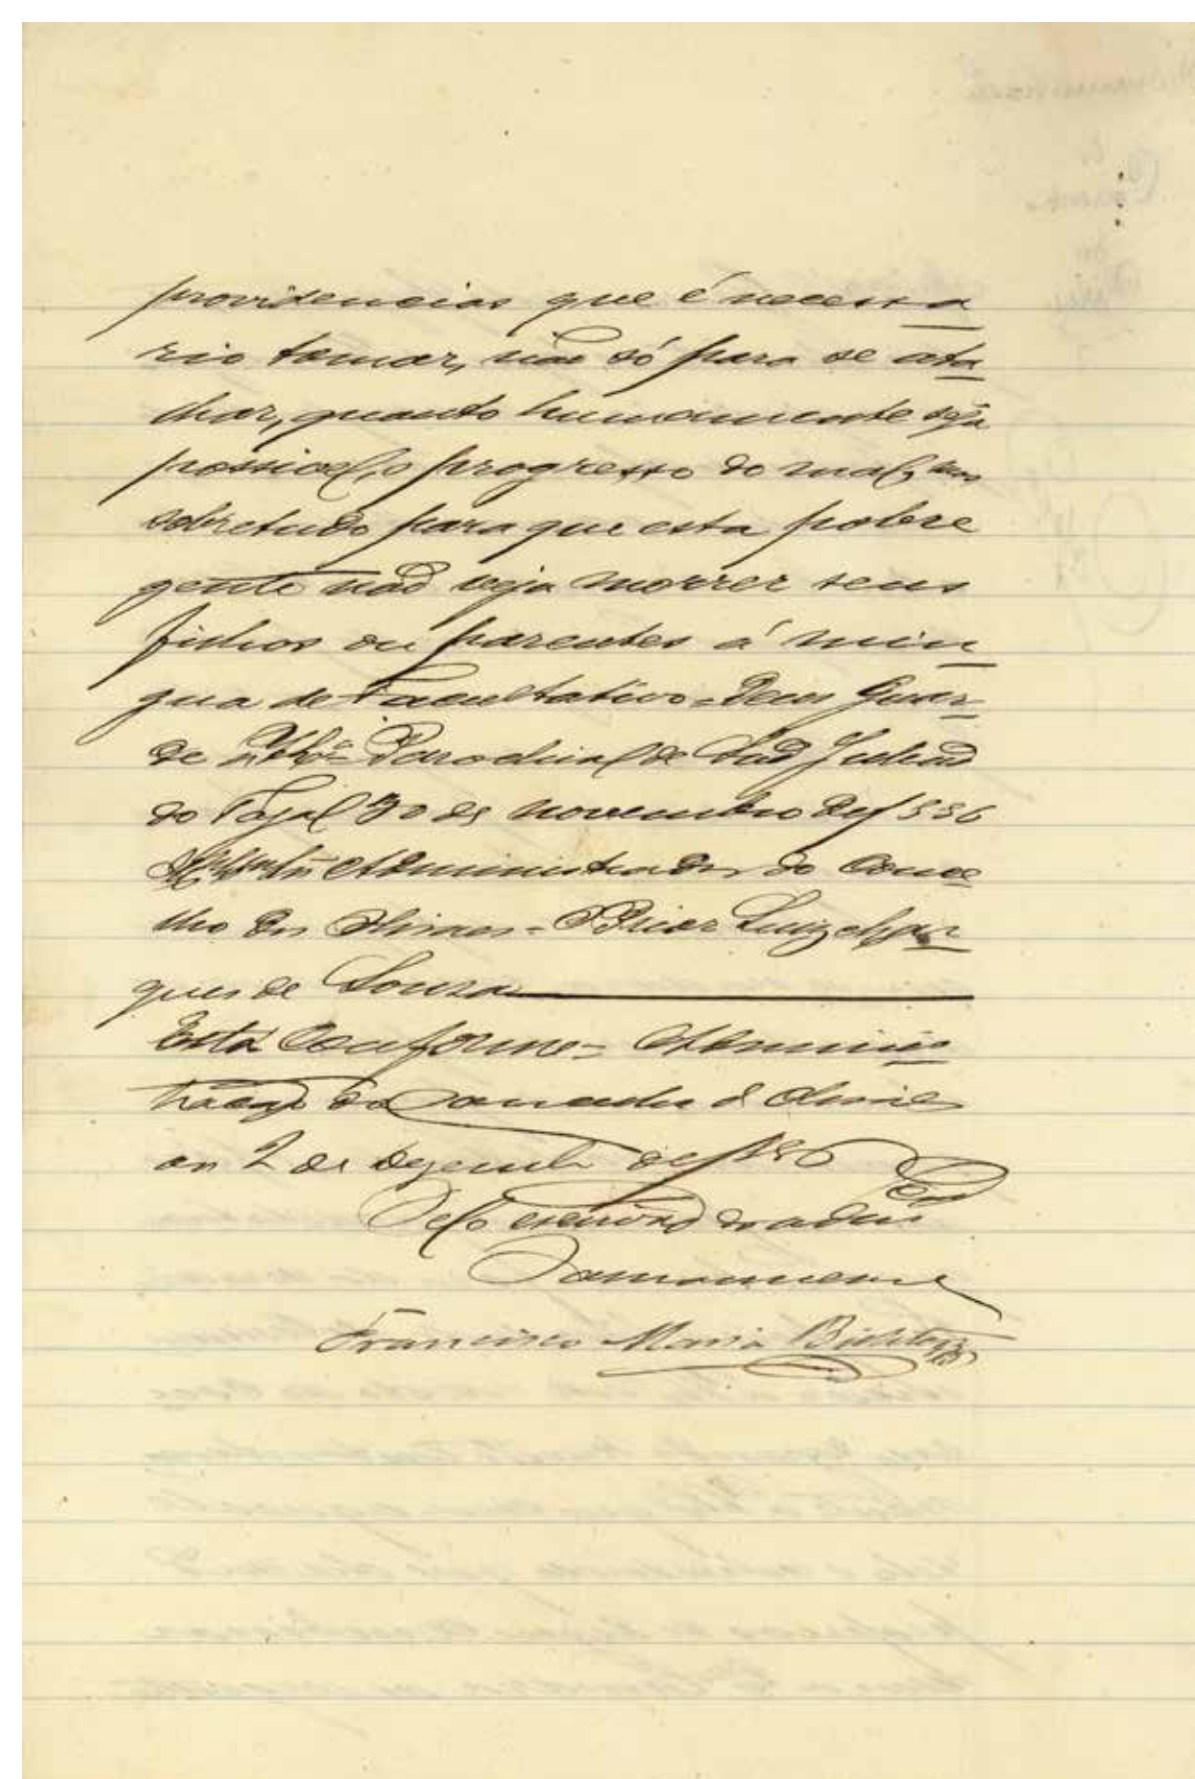 providencias que é necessa
rio tomar, não só para se ata
lhar, quanto humanamente seja
possivel, o progresso do mal, mas
sobretudo para que esta pobre
gente não veja morrer seus
filhos ou parentes á min
gua de Facultativo = Deus Guar
de Parochial de São Julião
do Tojal 30 de novembro de 1886
Administrador do Conce
lho dos Olivaes = Prior Luiz
ques de Souza
Está Conforme = Adminis
tração do Concelho d Olivaes
em 2 de Dezembro de 1886
O escrivão
Francisco Maria